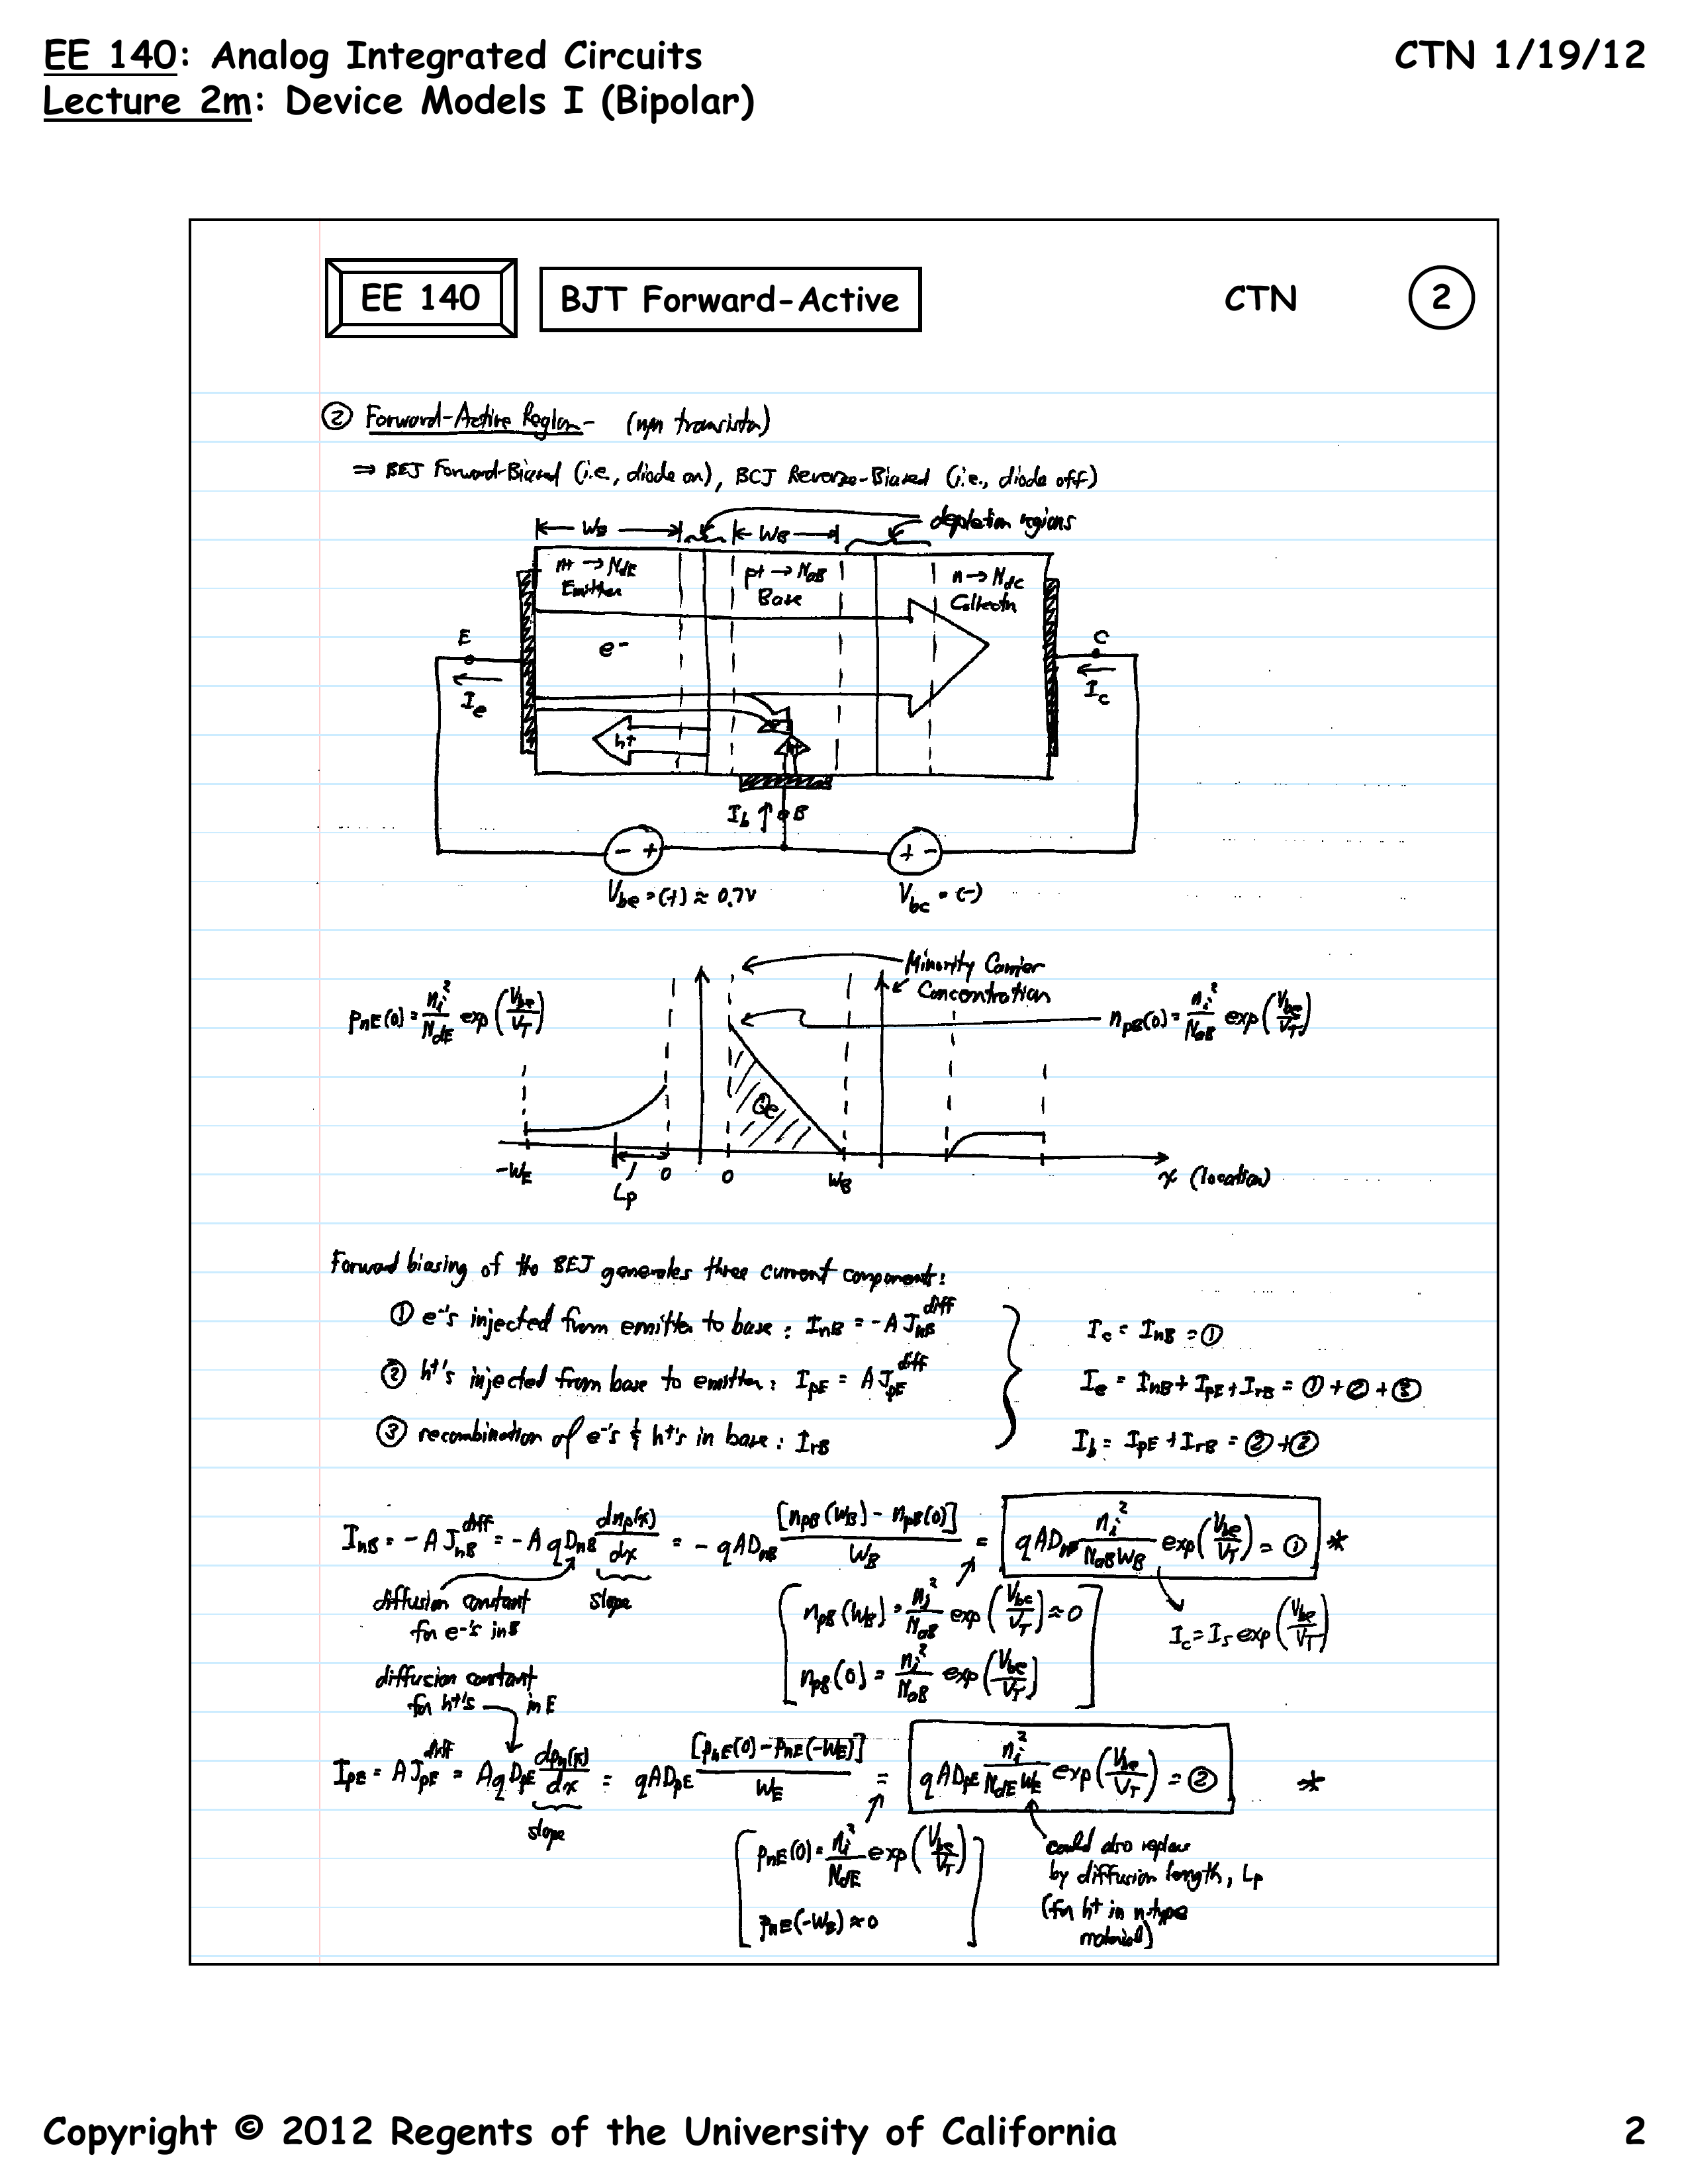 EE 140: Analog Integrated Circuits
CTN 1/19/12
Lecture 2m: Device Models I (Bipolar)
EE 140
BJT Forward-Active
CTN
2
② Forward-Active Region- (npn transistor)
⇒ BEJ Forward-Biased (i.e., diode on), BCJ Reverse-Biased (i.e., diode off)
W_E
W_B
depletion regions
n+ → N_dE
Emitter
p+ → N_aB
Base
n → N_dC
Collector
E
e-
C
I_e
I_c
h+
I_b ↑ B
- +
+ -
V_be = (+) ≈ 0.7V
V_bc = (-)
Minority Carrier
Concentration
p_nE(0) = n_i^2/N_dE exp(V_be/V_T)
n_pB(0) = n_i^2/N_aB exp(V_be/V_T)
Q_e
-W_E
L_p
0
0
W_B
x (location)
Forward biasing of the BEJ generates three current components:
① e-'s injected from emitter to base: I_nB = -A J_nB^diff
I_c = I_nB = ①
② h+'s injected from base to emitter: I_pE = A J_pE^diff
I_e = I_nB + I_pE + I_rB = ① + ② + ③
③ recombination of e-'s & h+'s in base: I_rB
I_b = I_pE + I_rB = ② + ③
I_nB = -A J_nB^diff = -A q D_nB dn_p(x)/dx = -qAD_nB [n_pB(W_B) - n_pB(0)]/W_B = qAD_nB n_i^2/(N_aB W_B) exp(V_be/V_T) = ① *
diffusion constant
for e-'s in B
slope
n_pB(W_B) = n_i^2/N_aB exp(V_bc/V_T) ≈ 0
I_c = I_s exp(V_be/V_T)
n_pB(0) = n_i^2/N_aB exp(V_be/V_T)
diffusion constant
for h+'s in E
I_pE = A J_pE^diff = A q D_pE dp_n(x)/dx = qAD_pE [p_nE(0) - p_nE(-W_E)]/W_E = qAD_pE n_i^2/(N_dE W_E) exp(V_be/V_T) = ② *
slope
p_nE(0) = n_i^2/N_dE exp(V_be/V_T)
p_nE(-W_E) ≈ 0
could also replace
by diffusion length, L_p
(for h+ in n-type
material)
Copyright © 2012 Regents of the University of California
2